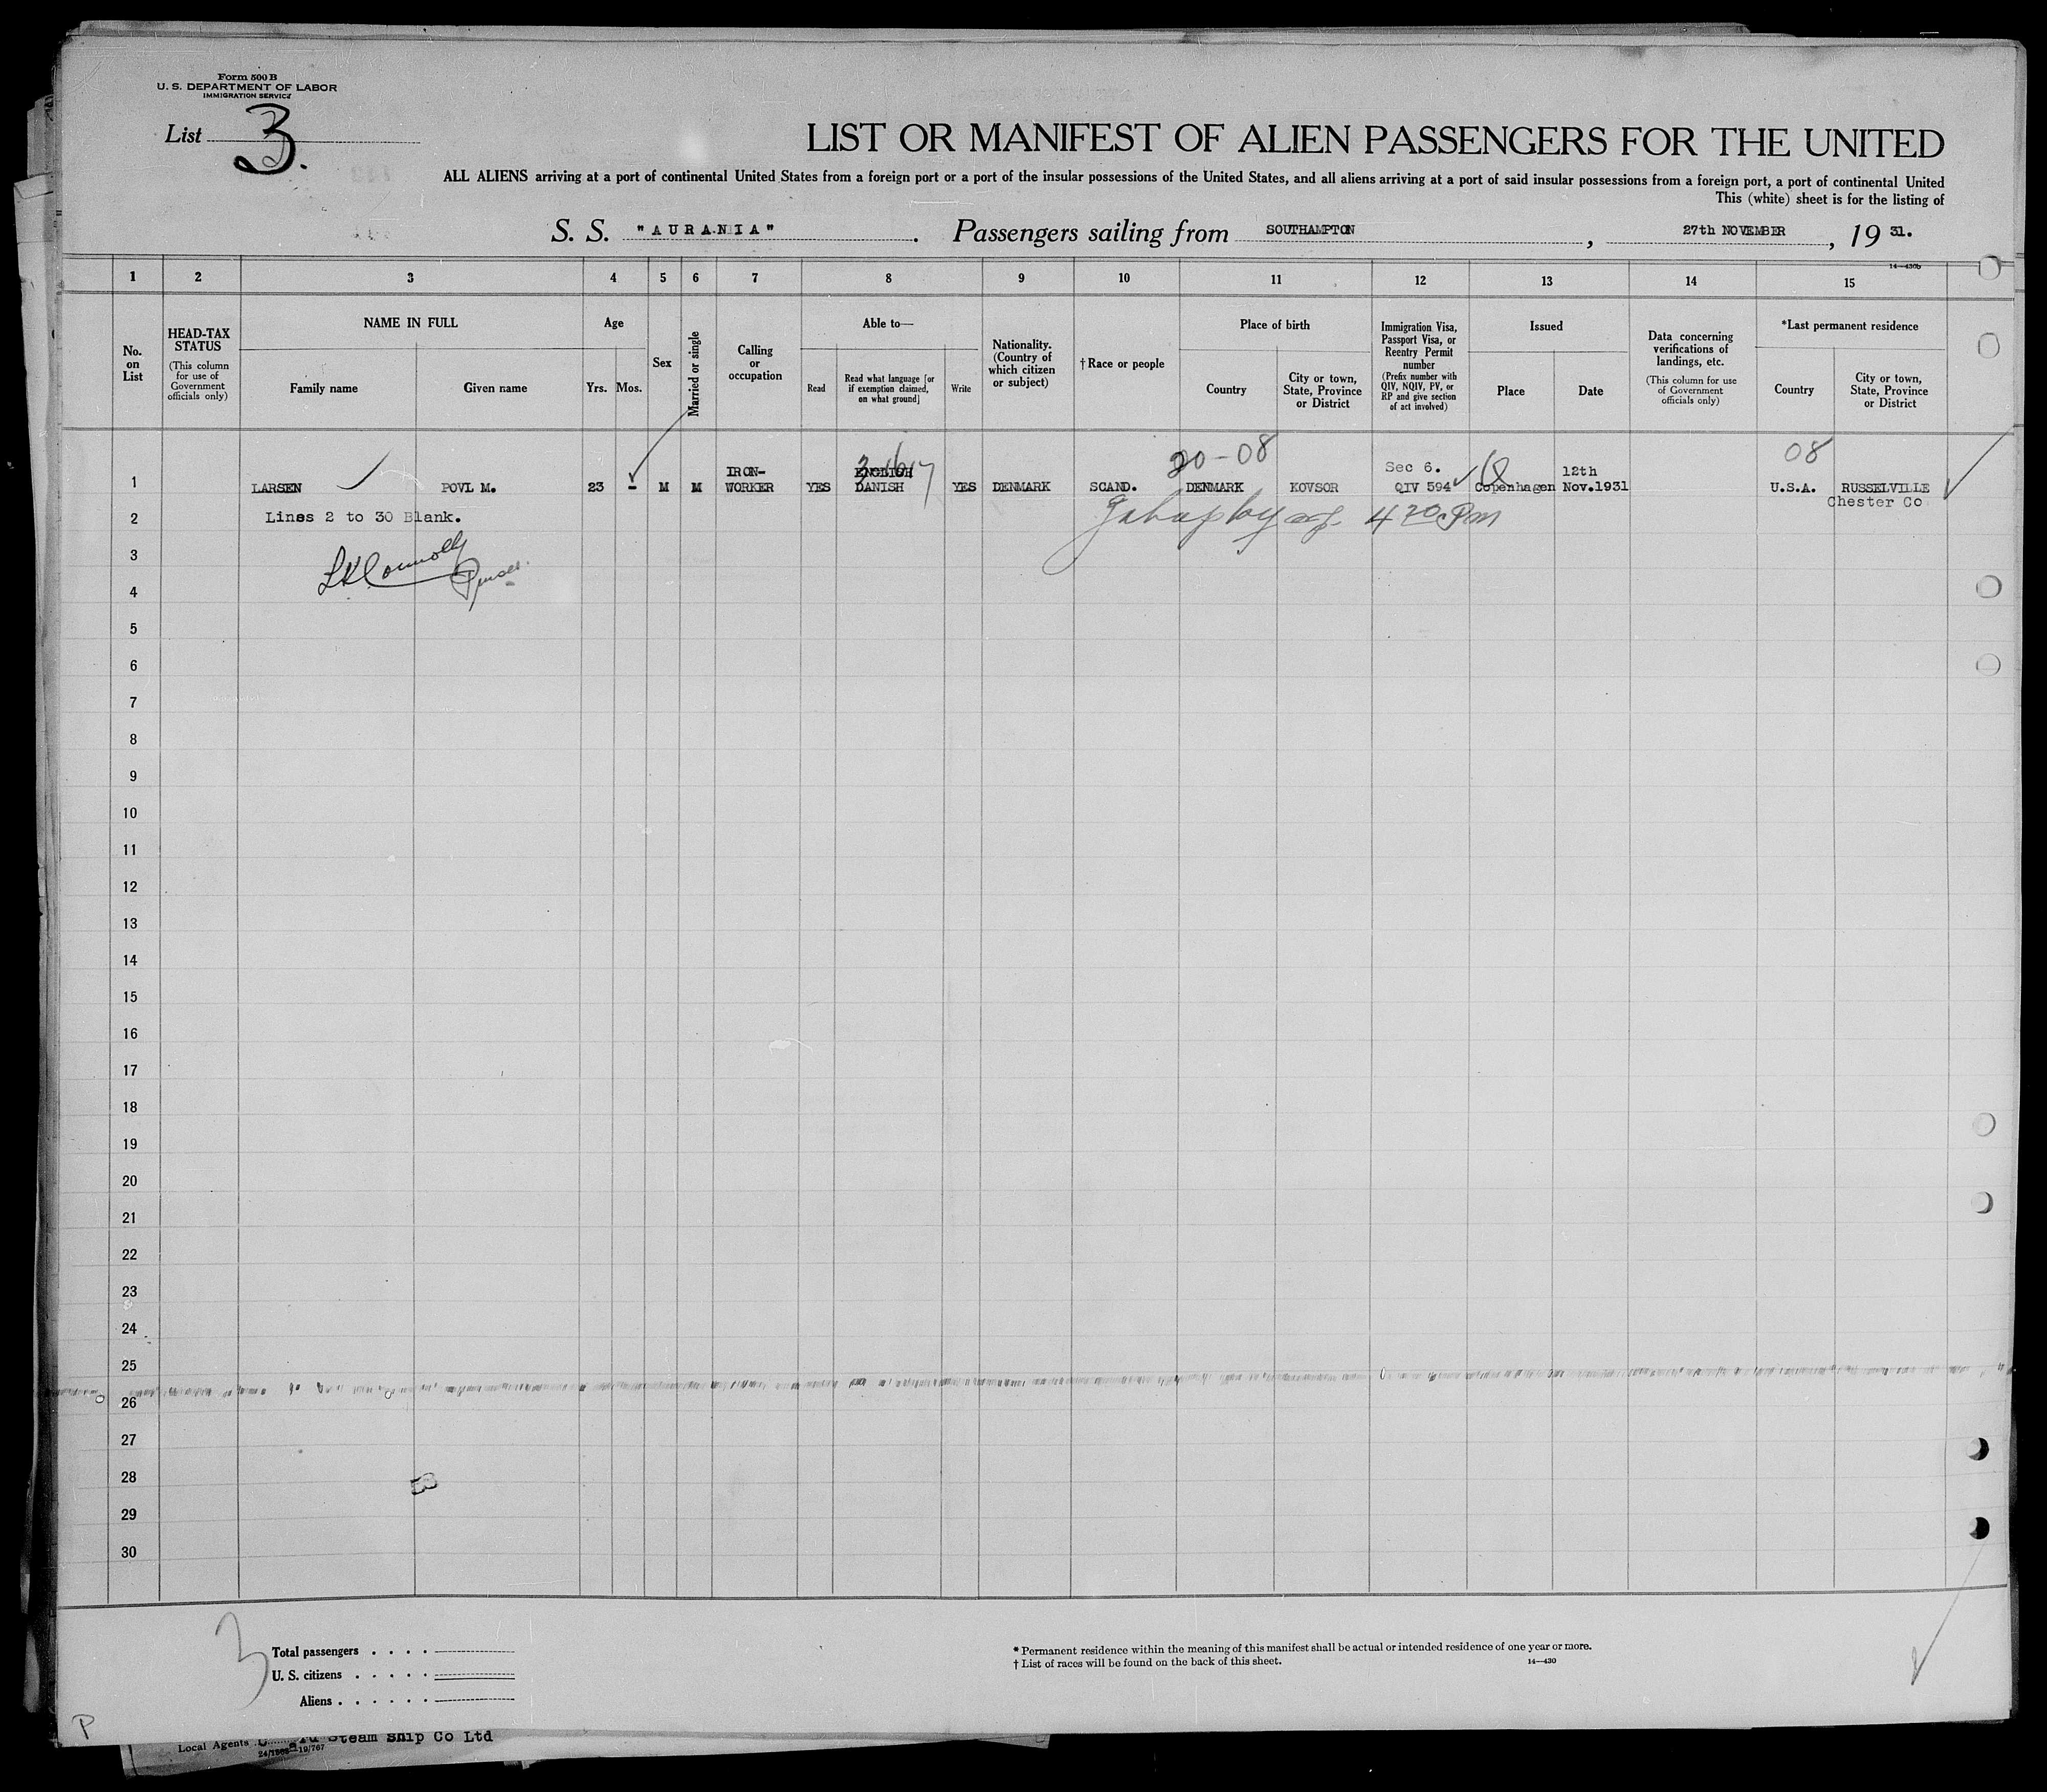 Form 500 B
U. S. DEPARTMENT OF LABOR
IMMIGRATION SERVICE
List 3.
LIST OR MANIFEST OF ALIEN PASSENGERS FOR THE UNITED
ALL ALIENS arriving at a port of continental United States from a foreign port or a port of the insular possessions of the United States, and all aliens arriving at a port of said insular possessions from a foreign port, a port of continental United
This (white) sheet is for the listing of
S. S. "AURANIA". Passengers sailing from SOUTHAMPTON, 27th NOVEMBER, 19 31.
14—430b
1 2 3 4 5 6 7 8 9 10 11 12 13 14 15
No. on List
HEAD-TAX STATUS
(This column for use of Government officials only)
NAME IN FULL
Family name
Given name
Age
Yrs. Mos.
Sex
Married or single
Calling or occupation
Able to—
Read
Read what language [or if exemption claimed, on what ground]
Write
Nationality. (Country of which citizen or subject)
†Race or people
Place of birth
Country
City or town, State, Province or District
Immigration Visa, Passport Visa, or Reentry Permit number
(Prefix number with QIV, NQIV, PV, or RP and give section of act involved)
Issued
Place
Date
Data concerning verifications of landings, etc.
(This column for use of Government officials only)
*Last permanent residence
Country
City or town, State, Province or District
20-08
08
IRON- ENGLISH Sec 6. 12th
1 LARSEN POVL M. 23 - M M WORKER YES DANISH YES DENMARK SCAND. DENMARK KOVSOR QIV 594 Copenhagen Nov.1931 U.S.A. RUSSELVILLE
Chester Co
2 Lines 2 to 30 Blank. 4 20 Pm
3
LKConnolly
Purser.
4
5
6
7
8
9
10
11
12
13
14
15
16
17
18
19
20
21
22
23
24
25
26
27
28
29
30
3
Total passengers . . . .
U. S. citizens . . . . .
Aliens . . . . . .
* Permanent residence within the meaning of this manifest shall be actual or intended residence of one year or more.
† List of races will be found on the back of this sheet.
14—430
P
Local Agents Steam Ship Co Ltd